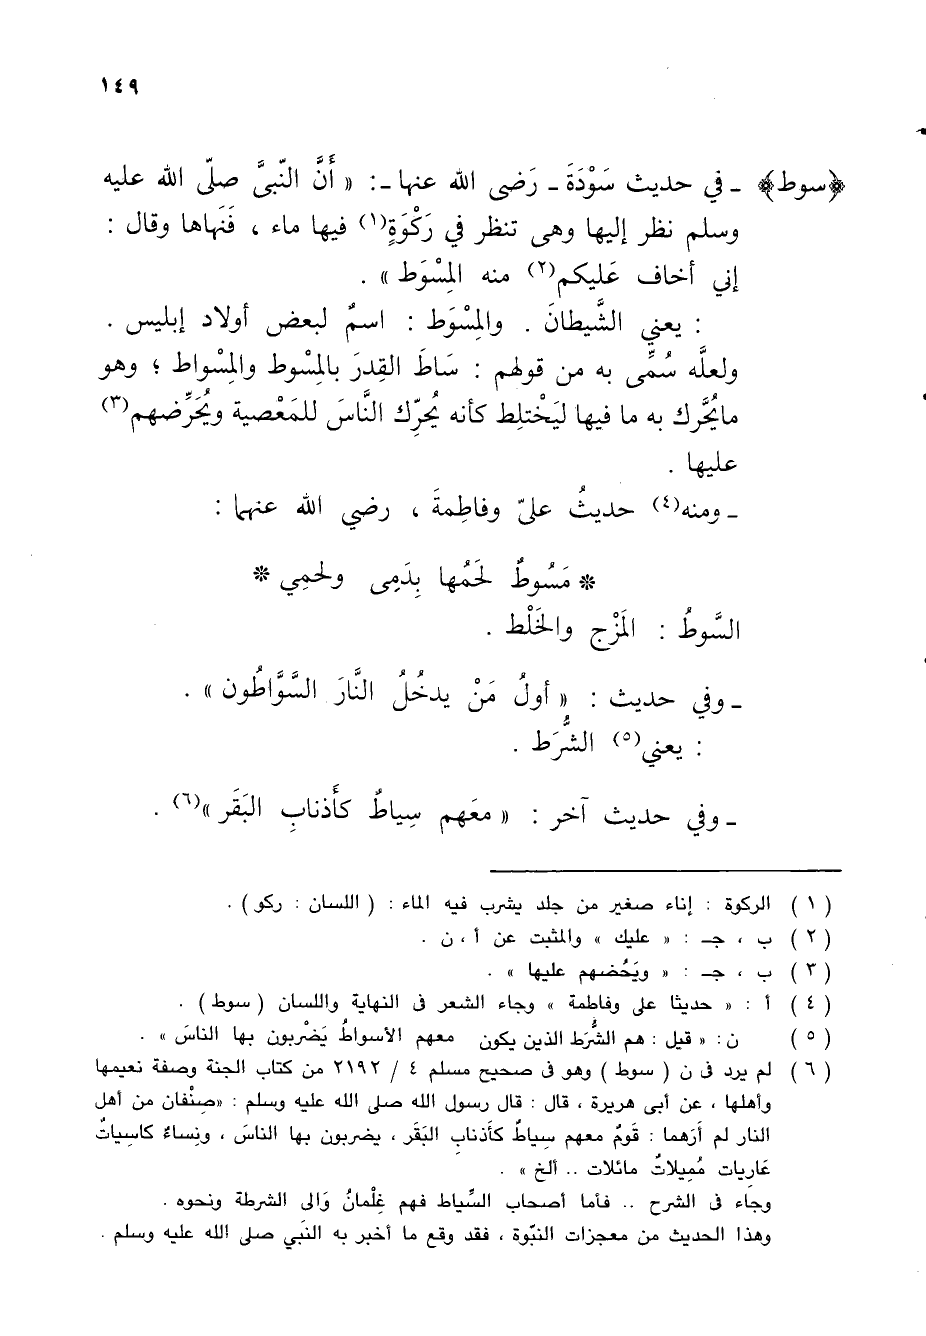 ١٤٩
﴿سوط﴾ ـ في حديث سَوْدَةَ ـ رَضى الله عنها ـ: « أَنَّ النّبىَّ صلّى الله عليه
وسلم نظر إليها وهى تنظر في رَكْوَةٍ(١) فيها ماء ، فَنَهاها وقال :
إني أخاف عَليكم(٢) منه المِسْوَط » .
: يعني الشَّيطانَ . والمِسْوَط : اسمٌ لبعض أولاد إبليس .
ولعلَّه سُمِّى به من قولهم : سَاطَ القِدرَ بالمِسْوط والمِسْواط ؛ وهو
مايُحَّرك به ما فيها ليَخْتلِط كأنه يُحرِّك النَّاسَ للمَعْصية ويُحَرِّضهم(٣)
عليها .
ـ ومنه(٤) حديثُ علىّ وفاطِمةَ ، رضي الله عنهما :
* مَسُوطٌ لحَمُها بِدَمِى ولحمِي *
السَّوطُ : المَزْج والخَلْط .
ـ وفي حديث : « أولُ مَنْ يدخُلُ النَّارَ السَّوَّاطُون » .
: يعني(٥) الشُّرَط .
ـ وفي حديث آخر : « معَهم سِياطٌ كأَذنابِ البَقَر »(٦) .
(١) الركوة : إناء صغير من جلد يشرب فيه الماء : ( اللسان : ركو ) .
(٢) ب ، جـ : « عليك » والمثبت عن أ ، ن .
(٣) ب ، جـ : « ويَحُضهم عليها » .
(٤) أ : « حديثا على وفاطمة » وجاء الشعر فى النهاية واللسان ( سوط ) .
(٥) ن : « قيل : هم الشُّرَط الذين يكون معهم الأسواطُ يَضْربون بها الناسَ » .
(٦) لم يرد فى ن ( سوط ) وهو فى صحيح مسلم ٤ / ٢١٩٢ من كتاب الجنة وصفة نعيمها
وأهلها ، عن أبى هريرة ، قال : قال رسول الله صلى الله عليه وسلم : «صنْفان من أهل
النار لم أرَهما : قومٌ معهم سِياطٌ كأذنابِ البَقَر ، يضربون بها الناسَ ، ونِساءٌ كاسِياتٌ
عَاريات مُميلاتٌ مائلات .. ألخ » .
وجاء فى الشرح .. فأما أصحاب السِّياط فهم غِلْمانُ وَالى الشرطة ونحوه .
وهذا الحديث من معجزات النبّوة ، فقد وقع ما أخبر به النَبي صلى الله عليه وسلم .